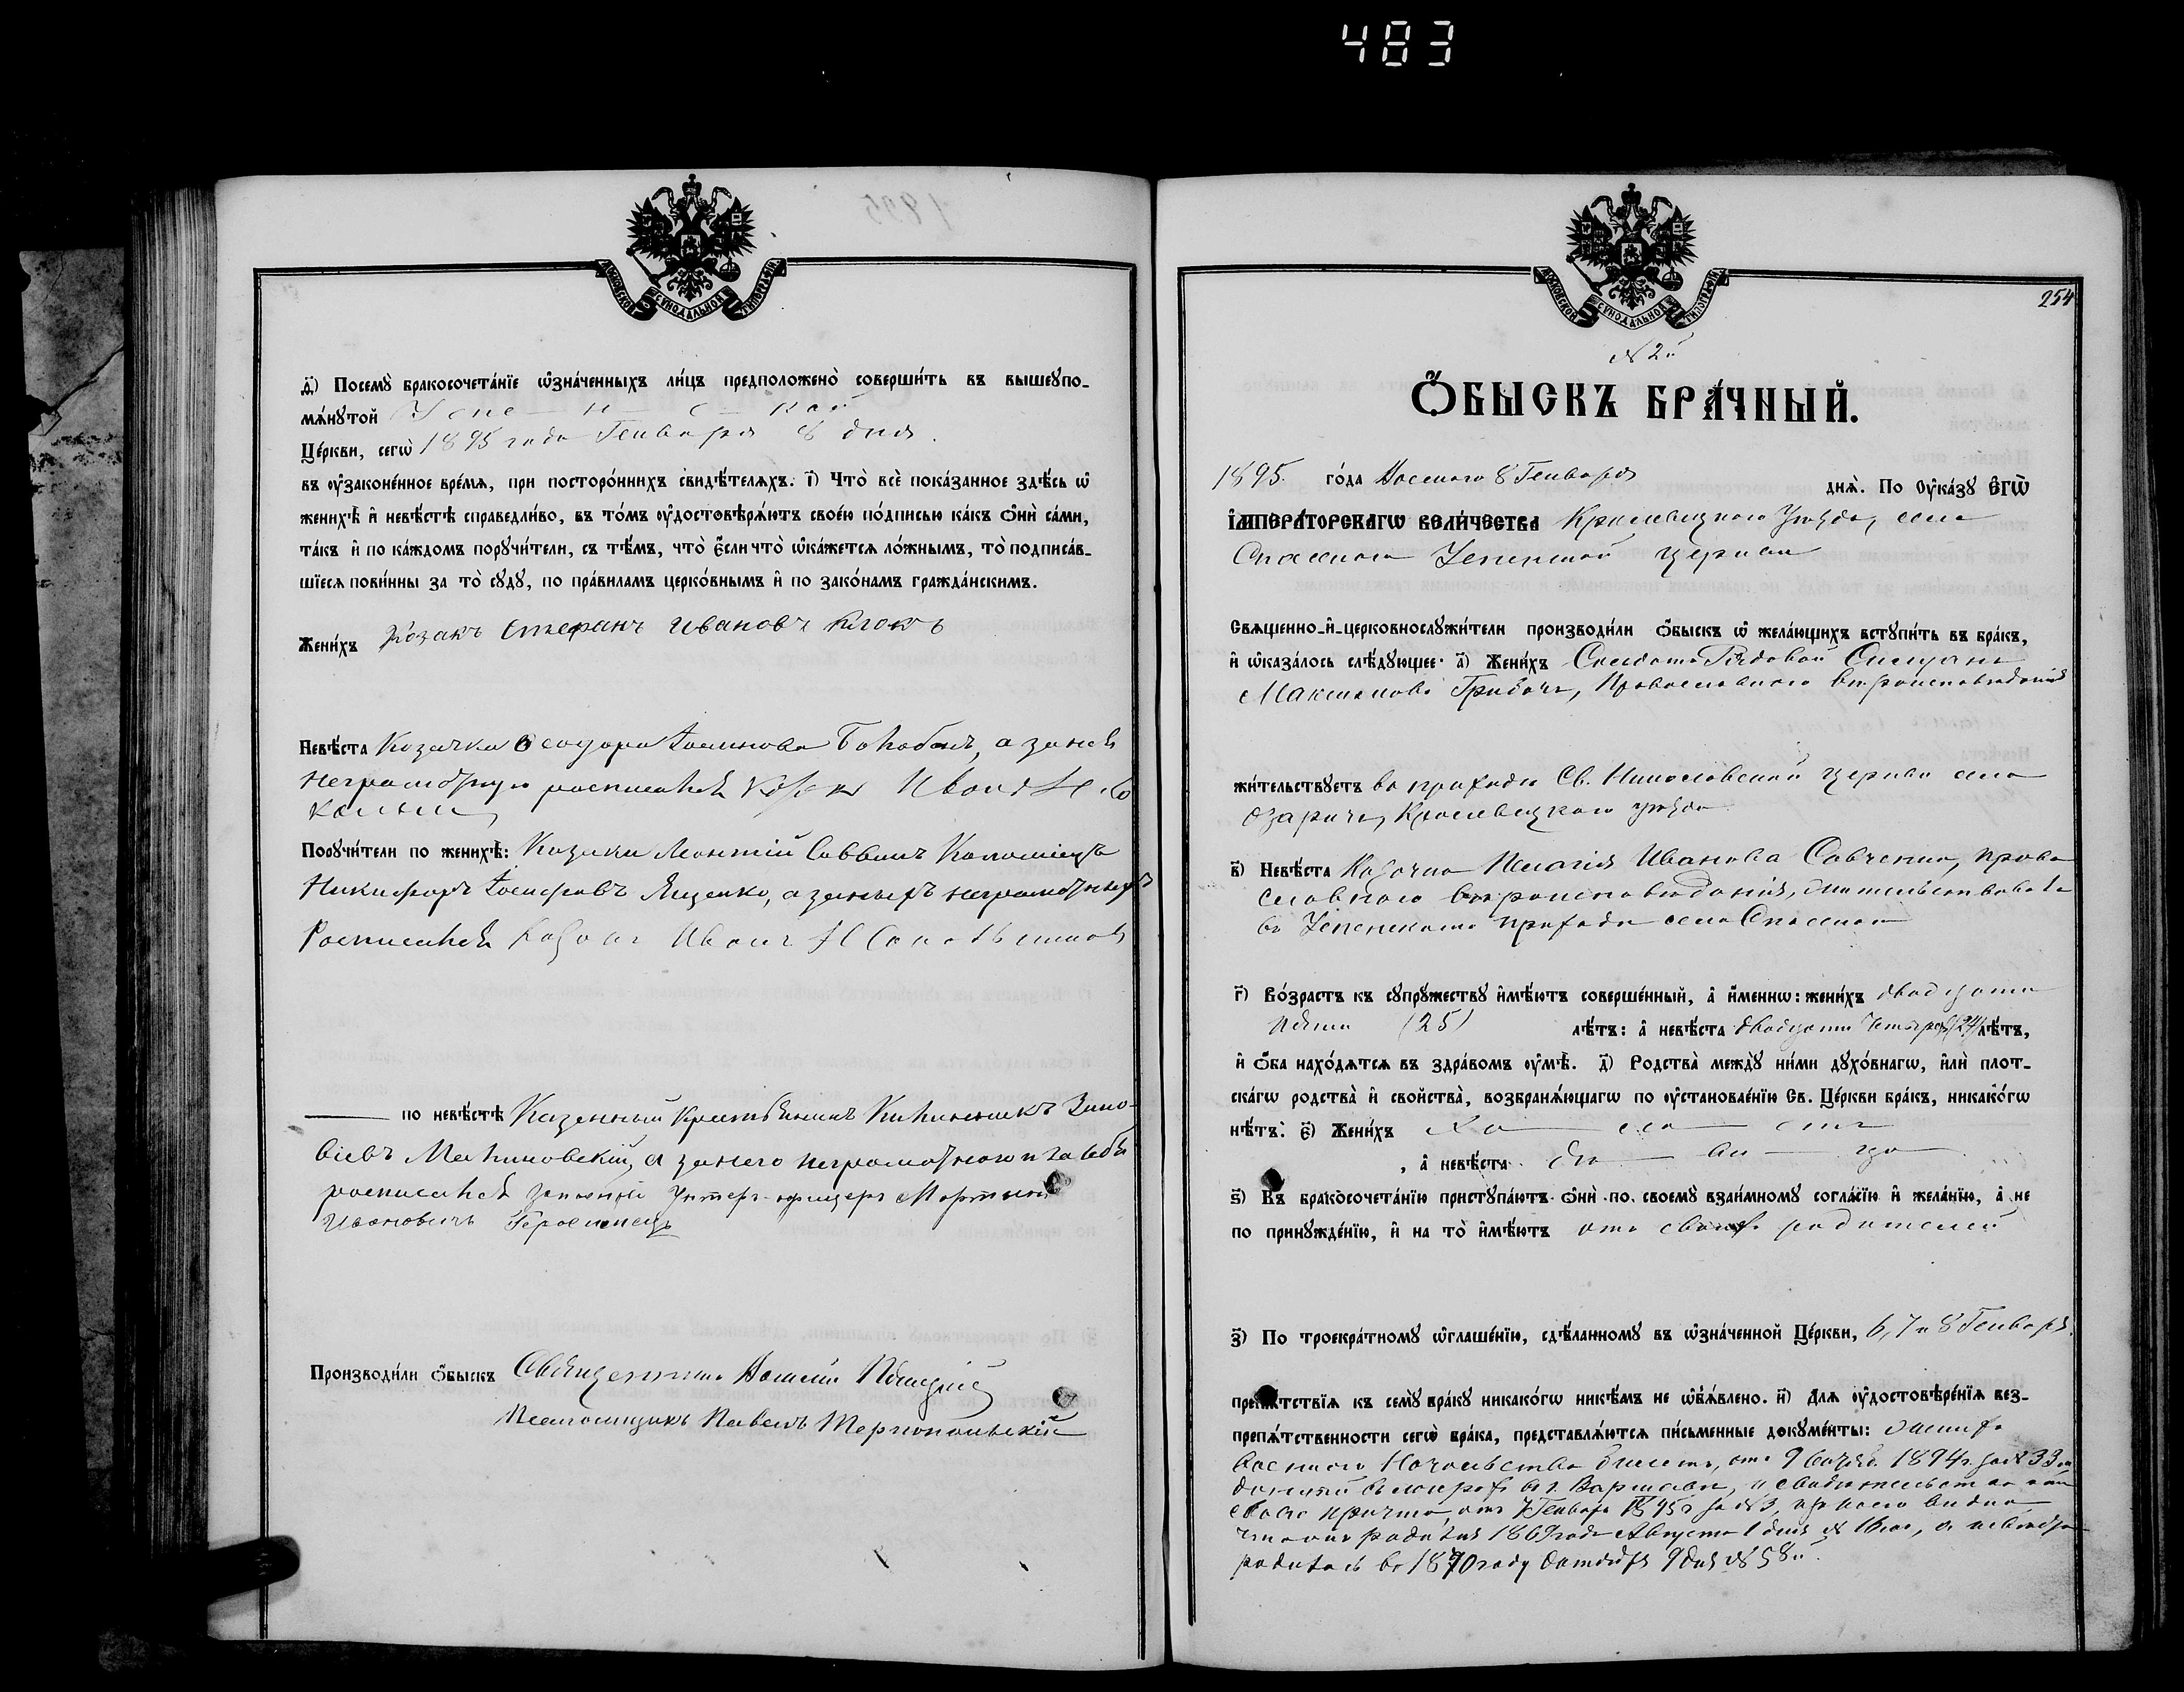 483
МОСКОВСКОЙ СѴНОДАЛЬНОЙ ТИПОГРАФІИ
д҃) Посемꙋ̀ бракосочета́нїе ѡ҆зна́ченныхъ ли́цъ предположено̀ соверши́ть въ вышеꙋпо-
мѧ́нꙋтой Успе — н — с — кой
Це́ркви, сегѡ̀ 1895 года Генваря 8 дня.
въ ᲂу҆законе́нное вре́мѧ, при посторо́ннихъ свидѣ́телѧхъ. і҃) Что̀ всѐ пока́занное здѣ́сь ѡ҆
женихѣ̀ и҆ невѣ́стѣ справедли́во, въ то́мъ ᲂу҆достовѣрѧ́ютъ свое́ю по́дписью ка́къ ѻ҆нѝ са́ми,
та́къ и҆ по ка́ждомъ порꙋчи́тели, съ тѣ́мъ, что̀ є҆́сли что̀ ѡ҆ка́жетсѧ ло́жнымъ, то̀ подписа́в-
шїесѧ пови́нны за то̀ сꙋдꙋ̀, по пра́виламъ церко́внымъ и҆ по зако́намъ гражда́нскимъ.
Жени́хъ Козакъ Стефанъ Ивановъ Клокъ
Невѣ́ста Козачка Ѳеодора а за неё
неграмотную росписался Иванъ
Порꙋчи́тели по женихѣ̀: Козаки Леонтій Саввинъ Коломіецъ
Никифоръ Іосифовъ Яценко, а за нихъ неграмотныхъ
Росписался Козакъ Иванъ
по невѣ́стѣ Казенный Крестьянинъ Зино-
віевъ а за него неграмотного и за себя
росписался запасный Унтеръ-офицеръ Мартинъ
Ивановичъ Герасимецъ
Производи́ли ѻ҆́быскъ Священникъ
Псаломщикъ Павелъ Тернопольскій
МОСКОВСКОЙ СѴНОДАЛЬНОЙ ТИПОГРАФІИ
254
№ 2й
Ѻ҆́БЫСКЪ БРА́ЧНЫЙ.
1895. го́да 8 Генваря днѧ̀. По ᲂу҆ка́зꙋ є҆гѡ̀
і҆мпера́торскагѡ вели́чества Кролевецкого Уѣзда, села
Спаского Успенской церкви
Свѧщенно-и҆-церковнослꙋжи́тели производи́ли ѻ҆́быскъ ѡ҆ жела́ющихъ встꙋпи́ть въ бра́къ,
и҆ ѡ҆каза́лось слѣ́дꙋющее: а҃) Жени́хъ Рядовой
Максимовъ Грибачъ, Православного вѣроисповѣданія
жи́тельствꙋетъ въ приходѣ Св. Николаевской церкви села
Озаричъ, Кролевецкого уѣзда
в҃) Невѣ́ста Козачка Пелагія Иванова Савченко, право
славного вѣроисповѣданія, жительствовала
въ Успенскомъ приходѣ села Спаского
г҃) Во́зрастъ къ сꙋпрꙋ́жествꙋ и҆мѣ́ютъ соверше́нный, а҆ и҆́меннѡ: жени́хъ двадцати
пяти (25) лѣ́тъ: а҆ невѣ́ста двадцати четырехъ (24) лѣ́тъ,
и҆ ѻ҆́ба нахо́дѧтсѧ въ здра́вомъ ᲂу҆мѣ̀. д҃) Родства̀ междꙋ̀ ни́ми дꙋхо́внагѡ, и҆лѝ плот-
ска́гѡ родства̀ и҆ свойства̀, возбранѧ́ющагѡ по ᲂу҆становле́нїю Св. Це́ркви бра́къ, никако́гѡ
нѣ́тъ. є҃) Жени́хъ Хо — ло — стъ
, а҆ невѣ́ста дѣ — ви — ца
ѕ҃) Къ бракосочета́нїю пристꙋпа́ютъ ѻ҆нѝ по своемꙋ̀ взаи́мномꙋ согла́сїю и҆ жела́нїю, а҆ не
по принꙋжде́нїю, и҆ на то̀ и҆мѣ́ютъ отъ своихъ родителей
з҃) По троекра́тномꙋ ѡ҆глаше́нїю, сдѣ́ланномꙋ въ ѡ҆зна́ченной Це́ркви, 6, 7 и 8 Генваря
препѧ́тствїѧ къ семꙋ̀ бра́кꙋ никако́гѡ никѣ́мъ не ѡ҆б̾ѧ́влено. и҃) Длѧ ᲂу҆достовѣре́нїѧ без-
препѧ́тственности сегѡ̀ бра́ка, представлѧ́ютсѧ пи́сьменные докꙋме́нты:
военного Начальства билетъ, отъ 9 1894 г. за № 33
данный въ г. Варшавѣ, и свидѣтельство
причта, отъ 7 Генваря 1895 г за № 3, изъ коего видно
что онъ родился 1869 года Августа 1 дня № 16, а невѣста
родилась въ 1870 году Октября 9 дня № 58й.